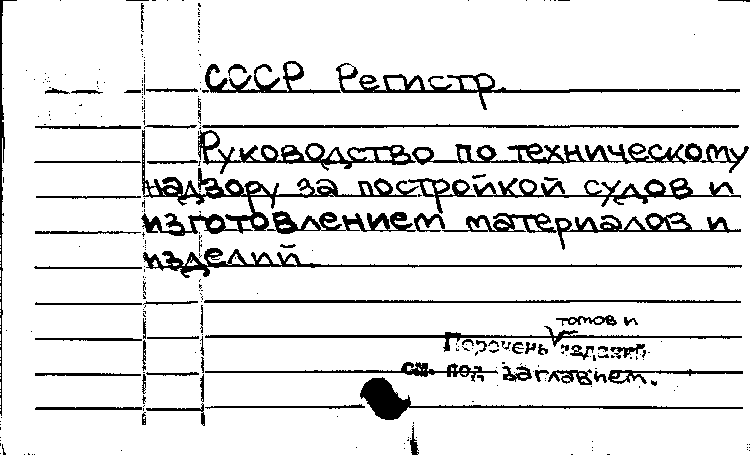 СССР Регистр.
Руководство по техническому
надзору за постройкой судов и
изготовлением материалов и
изделий.
томов и
Перечень изданий
см. под заглавием.